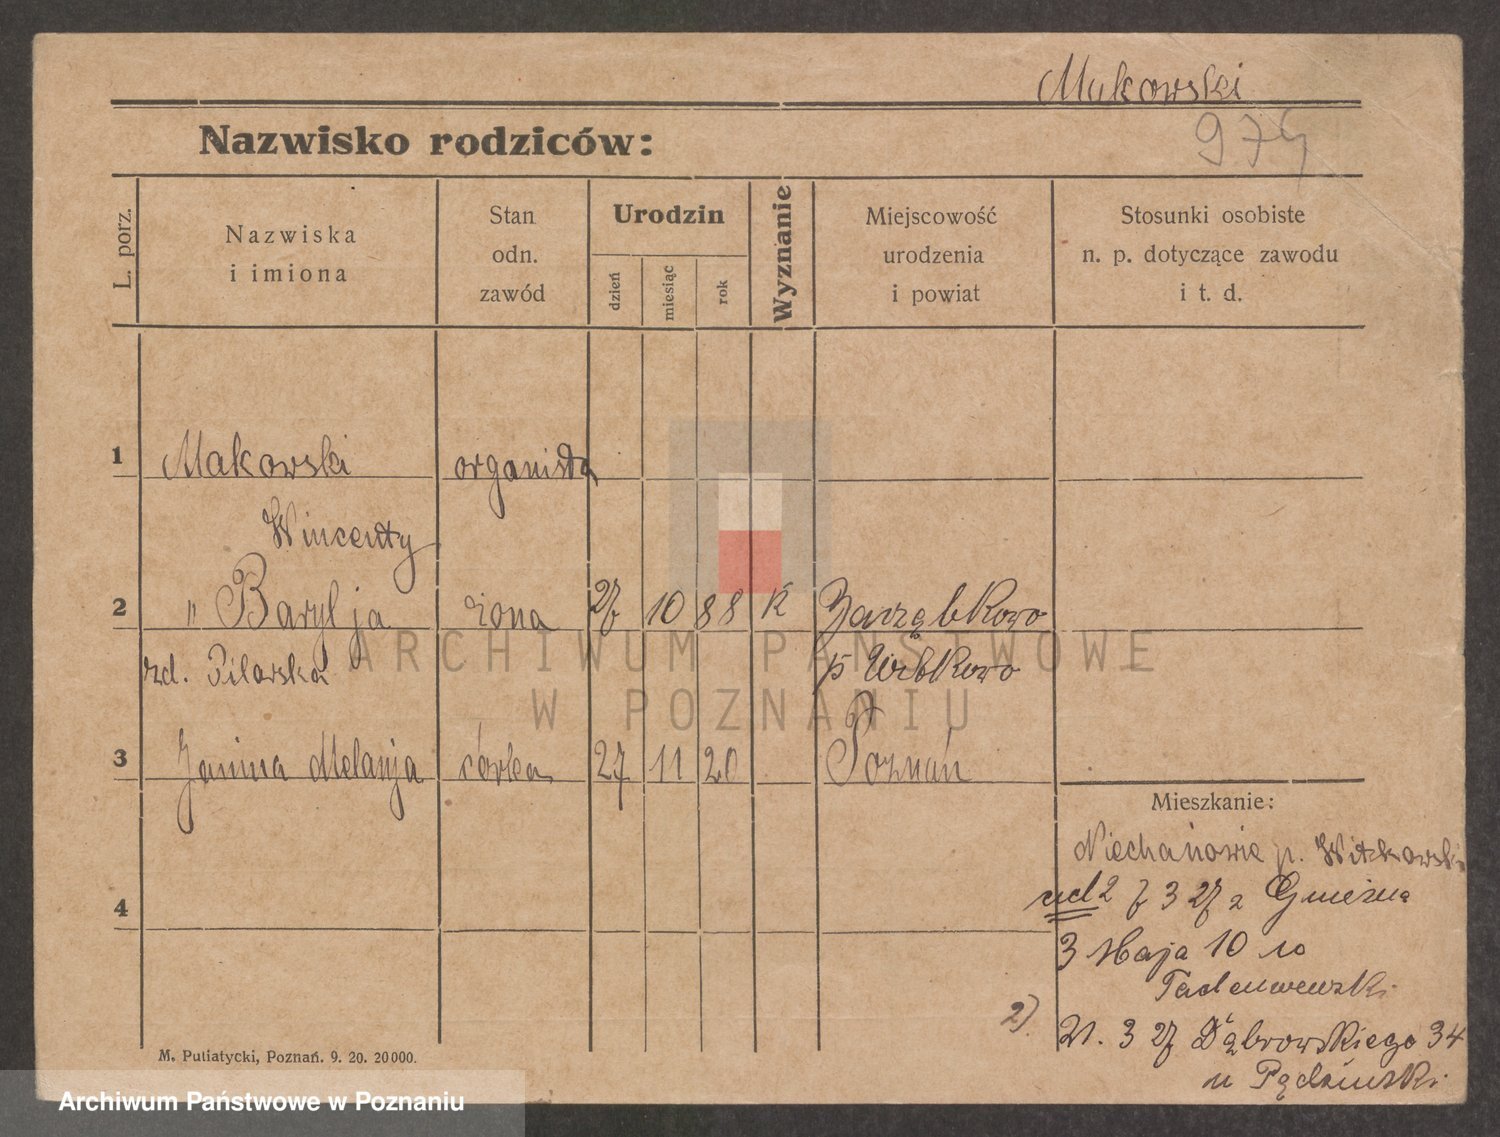 Makowski
Nazwisko rodziców:
L. porz.
Nazwiska
i imiona
Stan
odn.
zawód
Urodzin
dzień
miesiąc
rok
Wyznanie
Miejscowość
urodzenia
i powiat
Stosunki osobiste
n. p. dotyczące zawodu
i t. d.
1 Makowski organista
Wincenty
2 " Barylja żona 27 10 88 k Zarząbkowo
rzd. Pilarska p Witkowo
ARCHIWUM PAŃSTWOWE
W POZNANIU
3 Janina Melanja córka 27 11 20 Poznań
Mieszkanie:
Niechanowie p. Witkowski
4
2 z Gniezna
3 Maja 10
2) 21. 3 27 Dąbrowskiego 34
u
M. Putiatycki, Poznań. 9. 20. 20000.
Archiwum Państwowe w Poznaniu